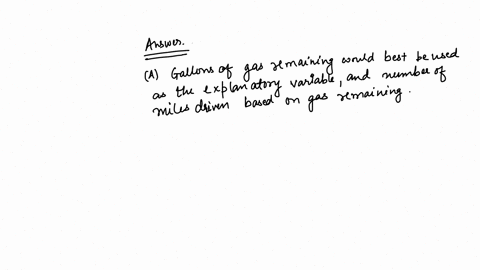 Answer.
(A) Gallons of gas remaining would best be used
as the explanatory variable, and number of
miles driven based on gas remaining.